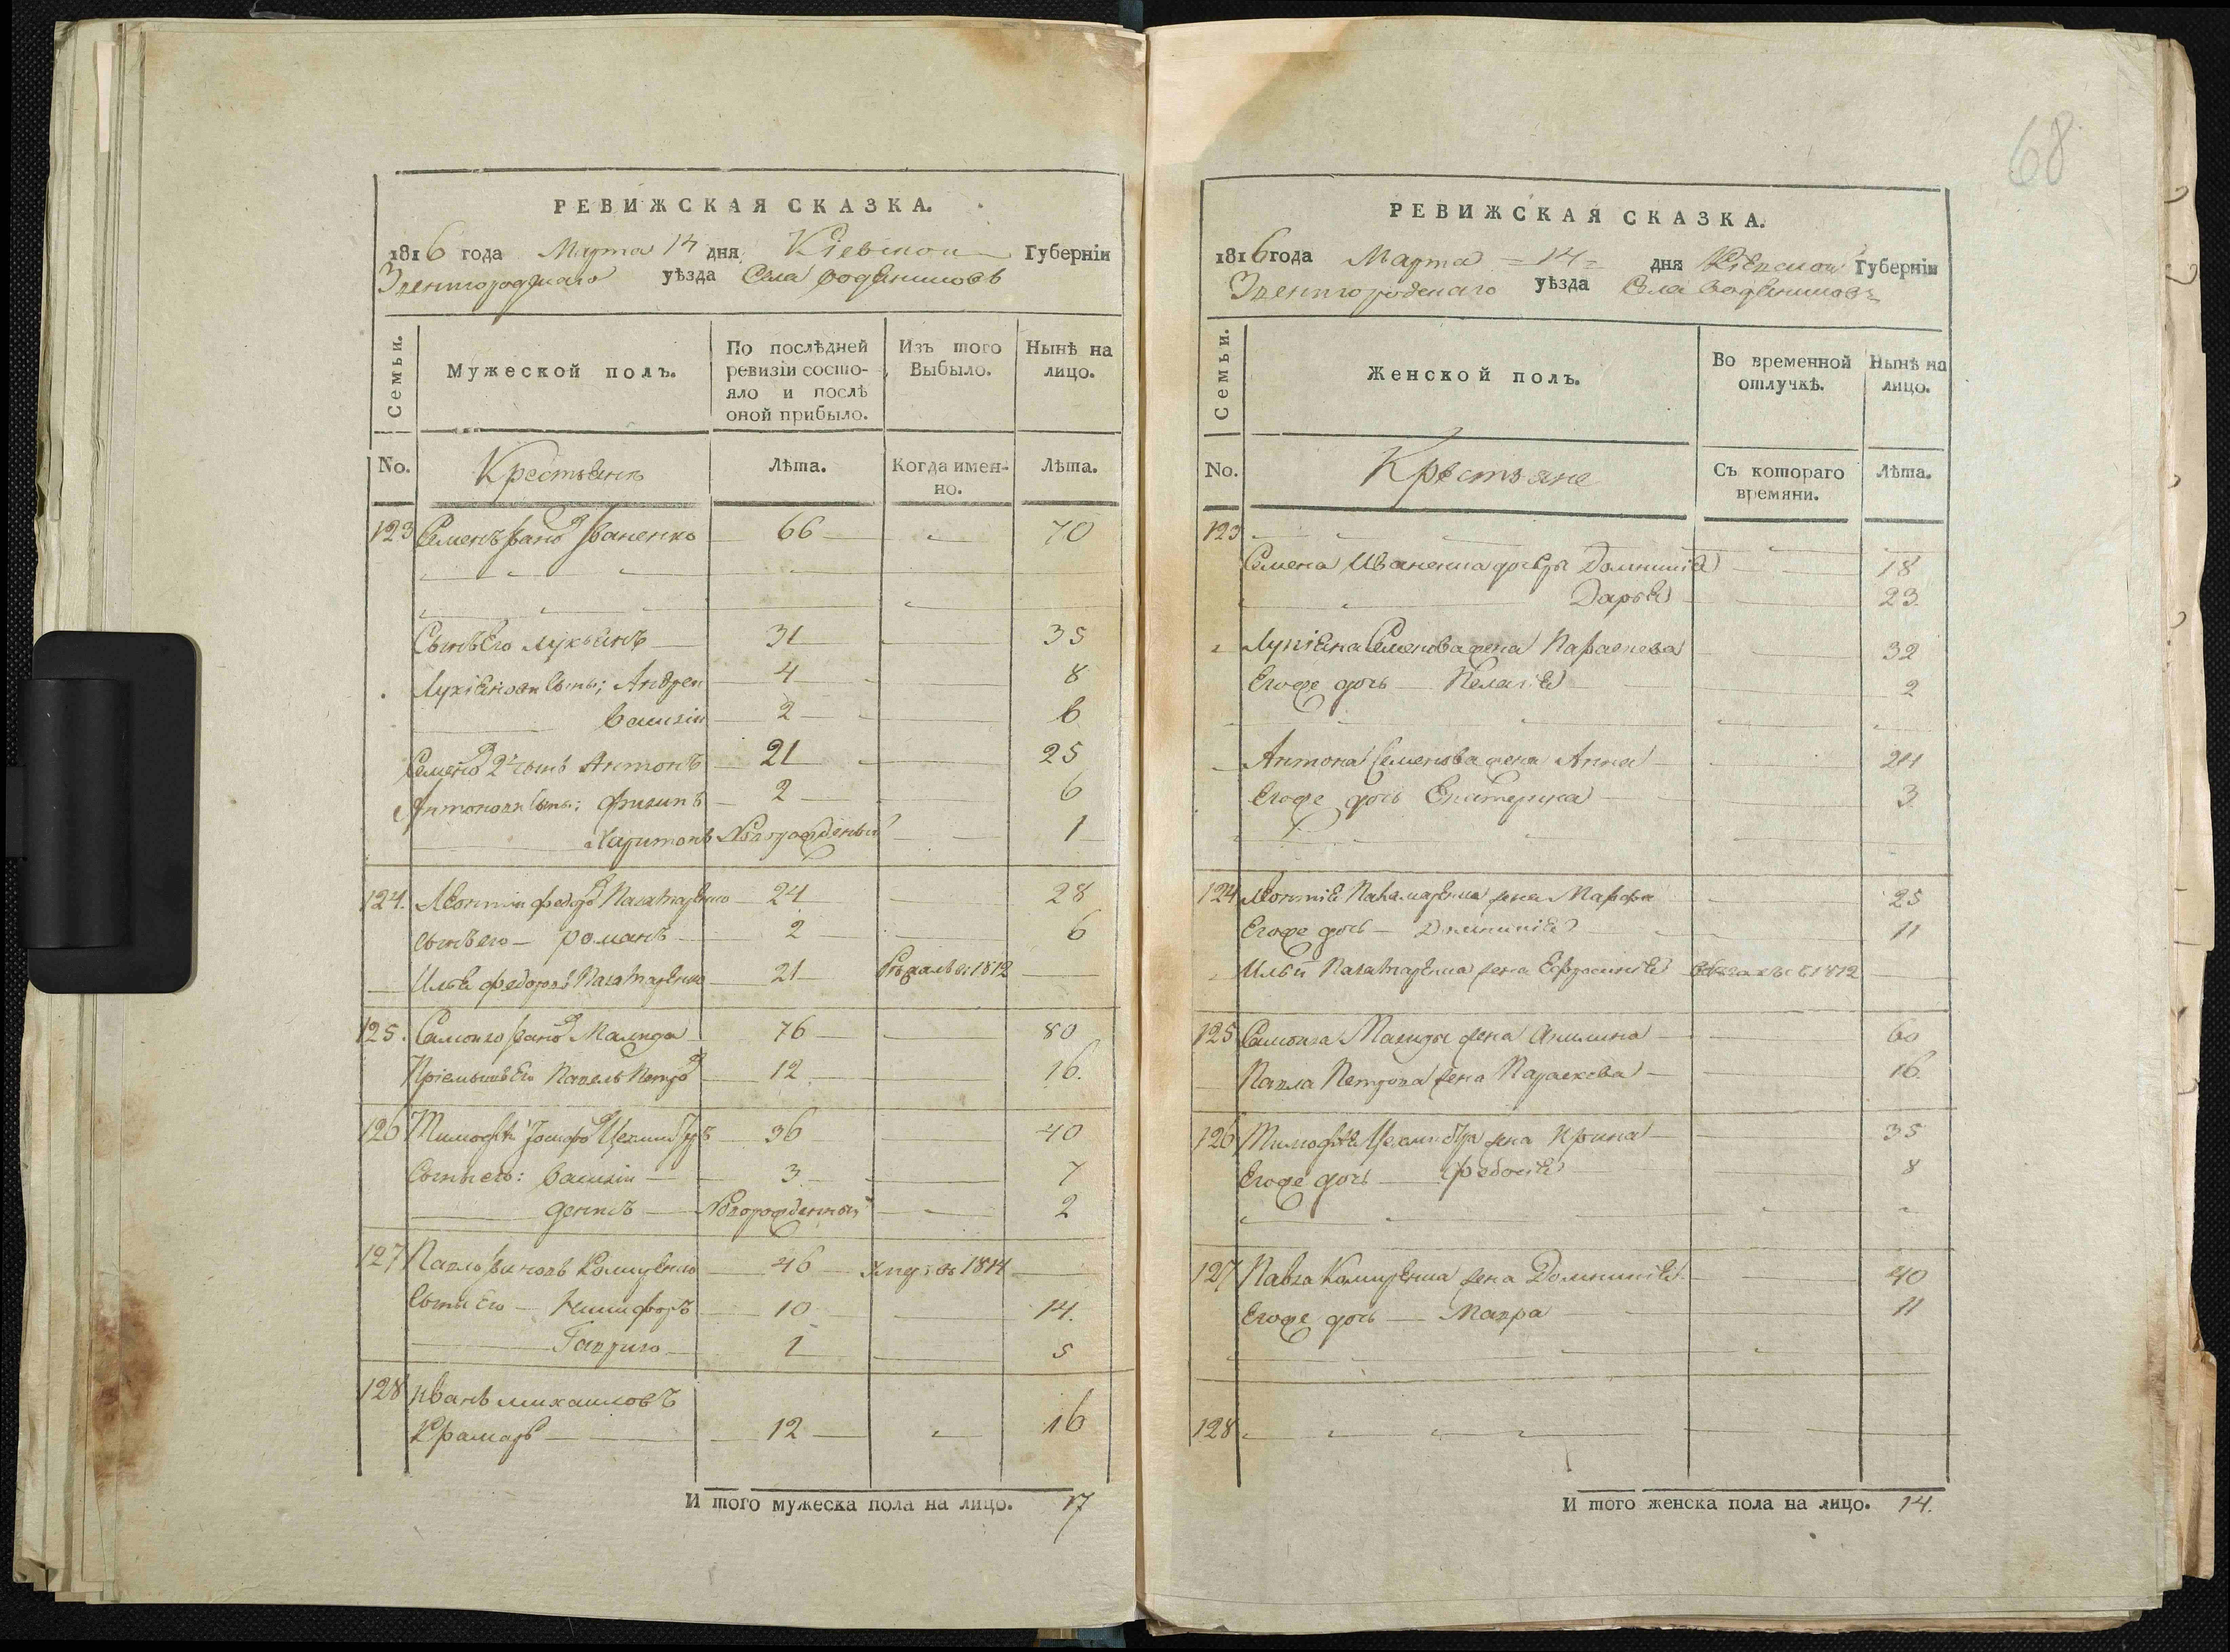 68
РЕВИЖСКАЯ СКАЗКА.
1816 года Марта 14 дня Кіевской Губерніи
Звенигородскаго уѣзда Села
Семьи.
Мужеской полъ.
По послѣдней ревизіи состояло и послѣ оной прибыло.
Изъ того Выбыло.
Нынѣ на лицо.
No.
Крестьянъ
Лѣта.
Когда именно.
Лѣта.
123 Семенъ Ивано Иваненко 66 70
Сынъ Его Лукьянъ 31 35
Лукіяновы Сыны: Андрей 4 8
Василій 2 6
Семено 2й сынъ Антонъ 21 25
Антоновы Сыны: Филипъ 2 6
Харитонъ Новорожденый 1
124. Леонтій Федоро 24 28
Сынъ его Романъ 2 6
Илья Федоровъ 21 1812
125. Самойло Ивано Малида 76 80
Пріемышъ Его Павелъ Петро 12 16.
126 Тимофей 36 40
Сыны его: Василій 3 7
Денисъ Новорожденный 2
127 Павло 46 Умеръ въ 1814
Сыны Его Никифоръ 10 14.
Гаврило 1 5
128 Иванъ Михаиловъ
Крамаръ 12 16
И того мужеска пола на лицо. 17
РЕВИЖСКАЯ СКАЗКА.
1816 года Марта 14 дня Кіевской Губерніи
Звенигородскаго уѣзда Села
Семьи.
Женской полъ.
Во временной отлучкѣ.
Нынѣ на лицо.
No.
Крестьяне
Съ котораго времяни.
Лѣта.
123
Семена Иваненка дочери Домникія 18
Дарья 23
Лукіяна Семенова жена Параскева 32
Егоже дочь Пелагія 2
Антона Семенова жена Анна 24
Егоже дочь Екатерина 3
124 Леонтія жена Марфа 25
Егоже дочь Домникія 11
Ильи жена Ефросинія 1812
125 Самойла Малиды жена Акилина 60
Павла Петрова жена Параскева 16
126 Тимофея жена Ирина 35
Егоже дочь Федосія 8
127 Павла жена Домникія 40
Егоже дочь Мавра 11
128
И того женска пола на лицо. 14.